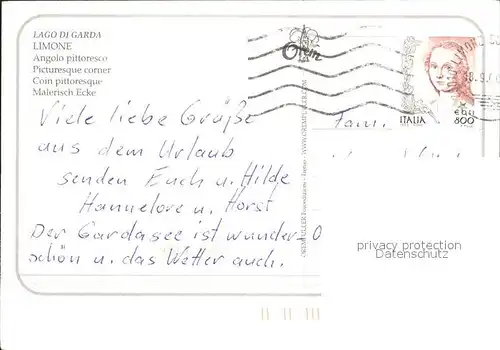 LAGO DI GARDA
LIMONE
Angolo pittoresco
Picturesque corner
Coin pittoresque
Malerisch Ecke
Viele liebe Grüße
aus dem Urlaub
senden Euch u. Hilde
Hannelore u. Horst
Der Gardasee ist wunder-
schön u. das Wetter auch.
Fam.
ITALIA 800
privacy protection
Datenschutz